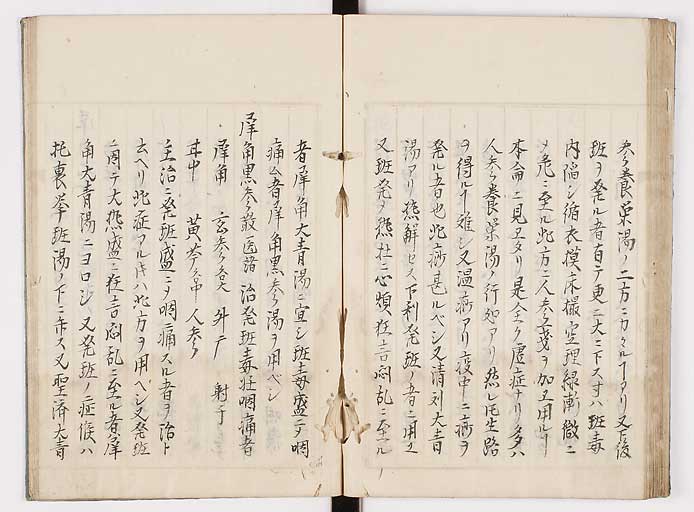 参養榮湯ノ二方ニカクルヿアリ又下後
班ヲ発ル者有テ更ニ大ニ下スヿハ班毒
内陥シ循衣摸床撮空理線漸微ニ
メ危ニ至ル此方ニ人参ヲ加エ用ルヿ
本論ニ見エタリ是全ク虚症ナリ多ハ
人参養榮湯ノ行処アリ然レ𪜈生路
ヲ得ルヿ難シ又温病アリ疫中ニ痢ヲ
発ル者也此痢甚ルベシ又清剤大青
湯アリ熱解セス下利発班ノ者ニ用ユ
又班発メ熱壮ニ心煩狂言悶乱ニ至ル
者犀角大青湯ニ宜シ班毒盛ニメ咽
痛ム者犀角黒参湯ヲ用ベシ
犀角黒参散 治発班毒壮咽痛者
犀角 玄参各大 升广 射干
甘中 黄芩各中 人参
主治ニ発班盛ニメ咽痛スル者ヲ治ト
云ヘリ此症アル𪜈ハ此方ヲ用ベシ又発班
ニ周テ大熱盛ニ狂言悶乱ニ至ル者犀
角大青湯ニヨロシ又発班ノ症候ハ
托裏挙班湯ノ下ニ示ス又聖済大青